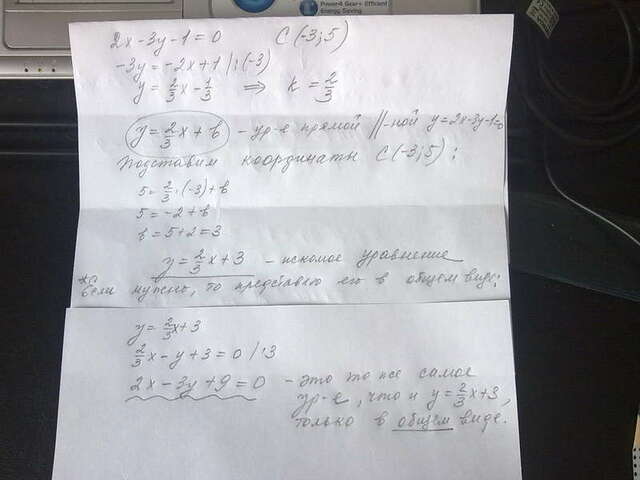 Power4 Gear+ Efficient
Energy Saving
2x-3y-1=0 C(-3;5)
-3y=-2x+1 |:(-3)
y=2/3x-1/3 ⇒ k=2/3
y=2/3x+b - ур-е прямой ||-ной y=2x-3y-1=0
Подставим координаты C(-3;5):
5=2/3·(-3)+b
5=-2+b
b=5+2=3
y=2/3x+3 - искомое уравнение
Если нужень, то представлю его в общем виде:
y=2/3x+3
2/3x-y+3=0 /·3
2x-3y+9=0 - это то же самое
ур-е, что и y=2/3x+3,
только в общем виде.